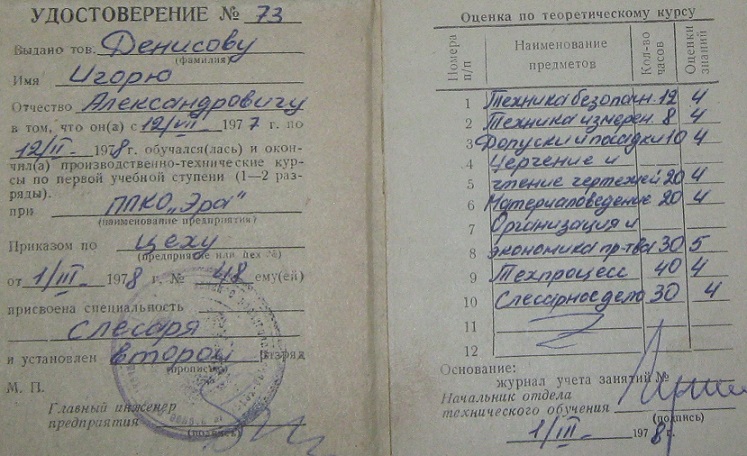 УДОСТОВЕРЕНИЕ № 73
Выдано тов. Денисову
(фамилия)
Имя Игорю
Отчество Александровичу
в том, что он(а) с 12/VII 1977 г. по
12/II 1978 г. обучался(лась) и окон-
чил(а) производственно-технические кур-
сы по первой учебной ступени (1—2 раз-
ряды).
при ППКО „Эра"
(наименование предприятия)
Приказом по цеху
(предприятие или цех №)
от 1/III 1978 г. № 48 ему(ей)
присвоена специальность
слесаря
и установлен второй разряд
(прописью)
М. П.
Главный инженер
предприятия
(подпись)
Оценка по теоретическому курсу
Номера п/п
Наименование предметов
Кол-во часов
Оценки знаний
1 Техника безопасн. 12 4
2 Техника измерен. 8 4
3 Допуски и посадки 10 4
4 Черчение и
5 чтение чертежей 20 4
6 Материаловедение 20 4
7 Организация и
8 экономика пр-тва 30 5
9 Техпроцесс 40 4
10 Слесарное дело 30 4
11
12
Основание:
журнал учета занятий №
Начальник отдела
технического обучения
(подпись)
1/III 1978 г.